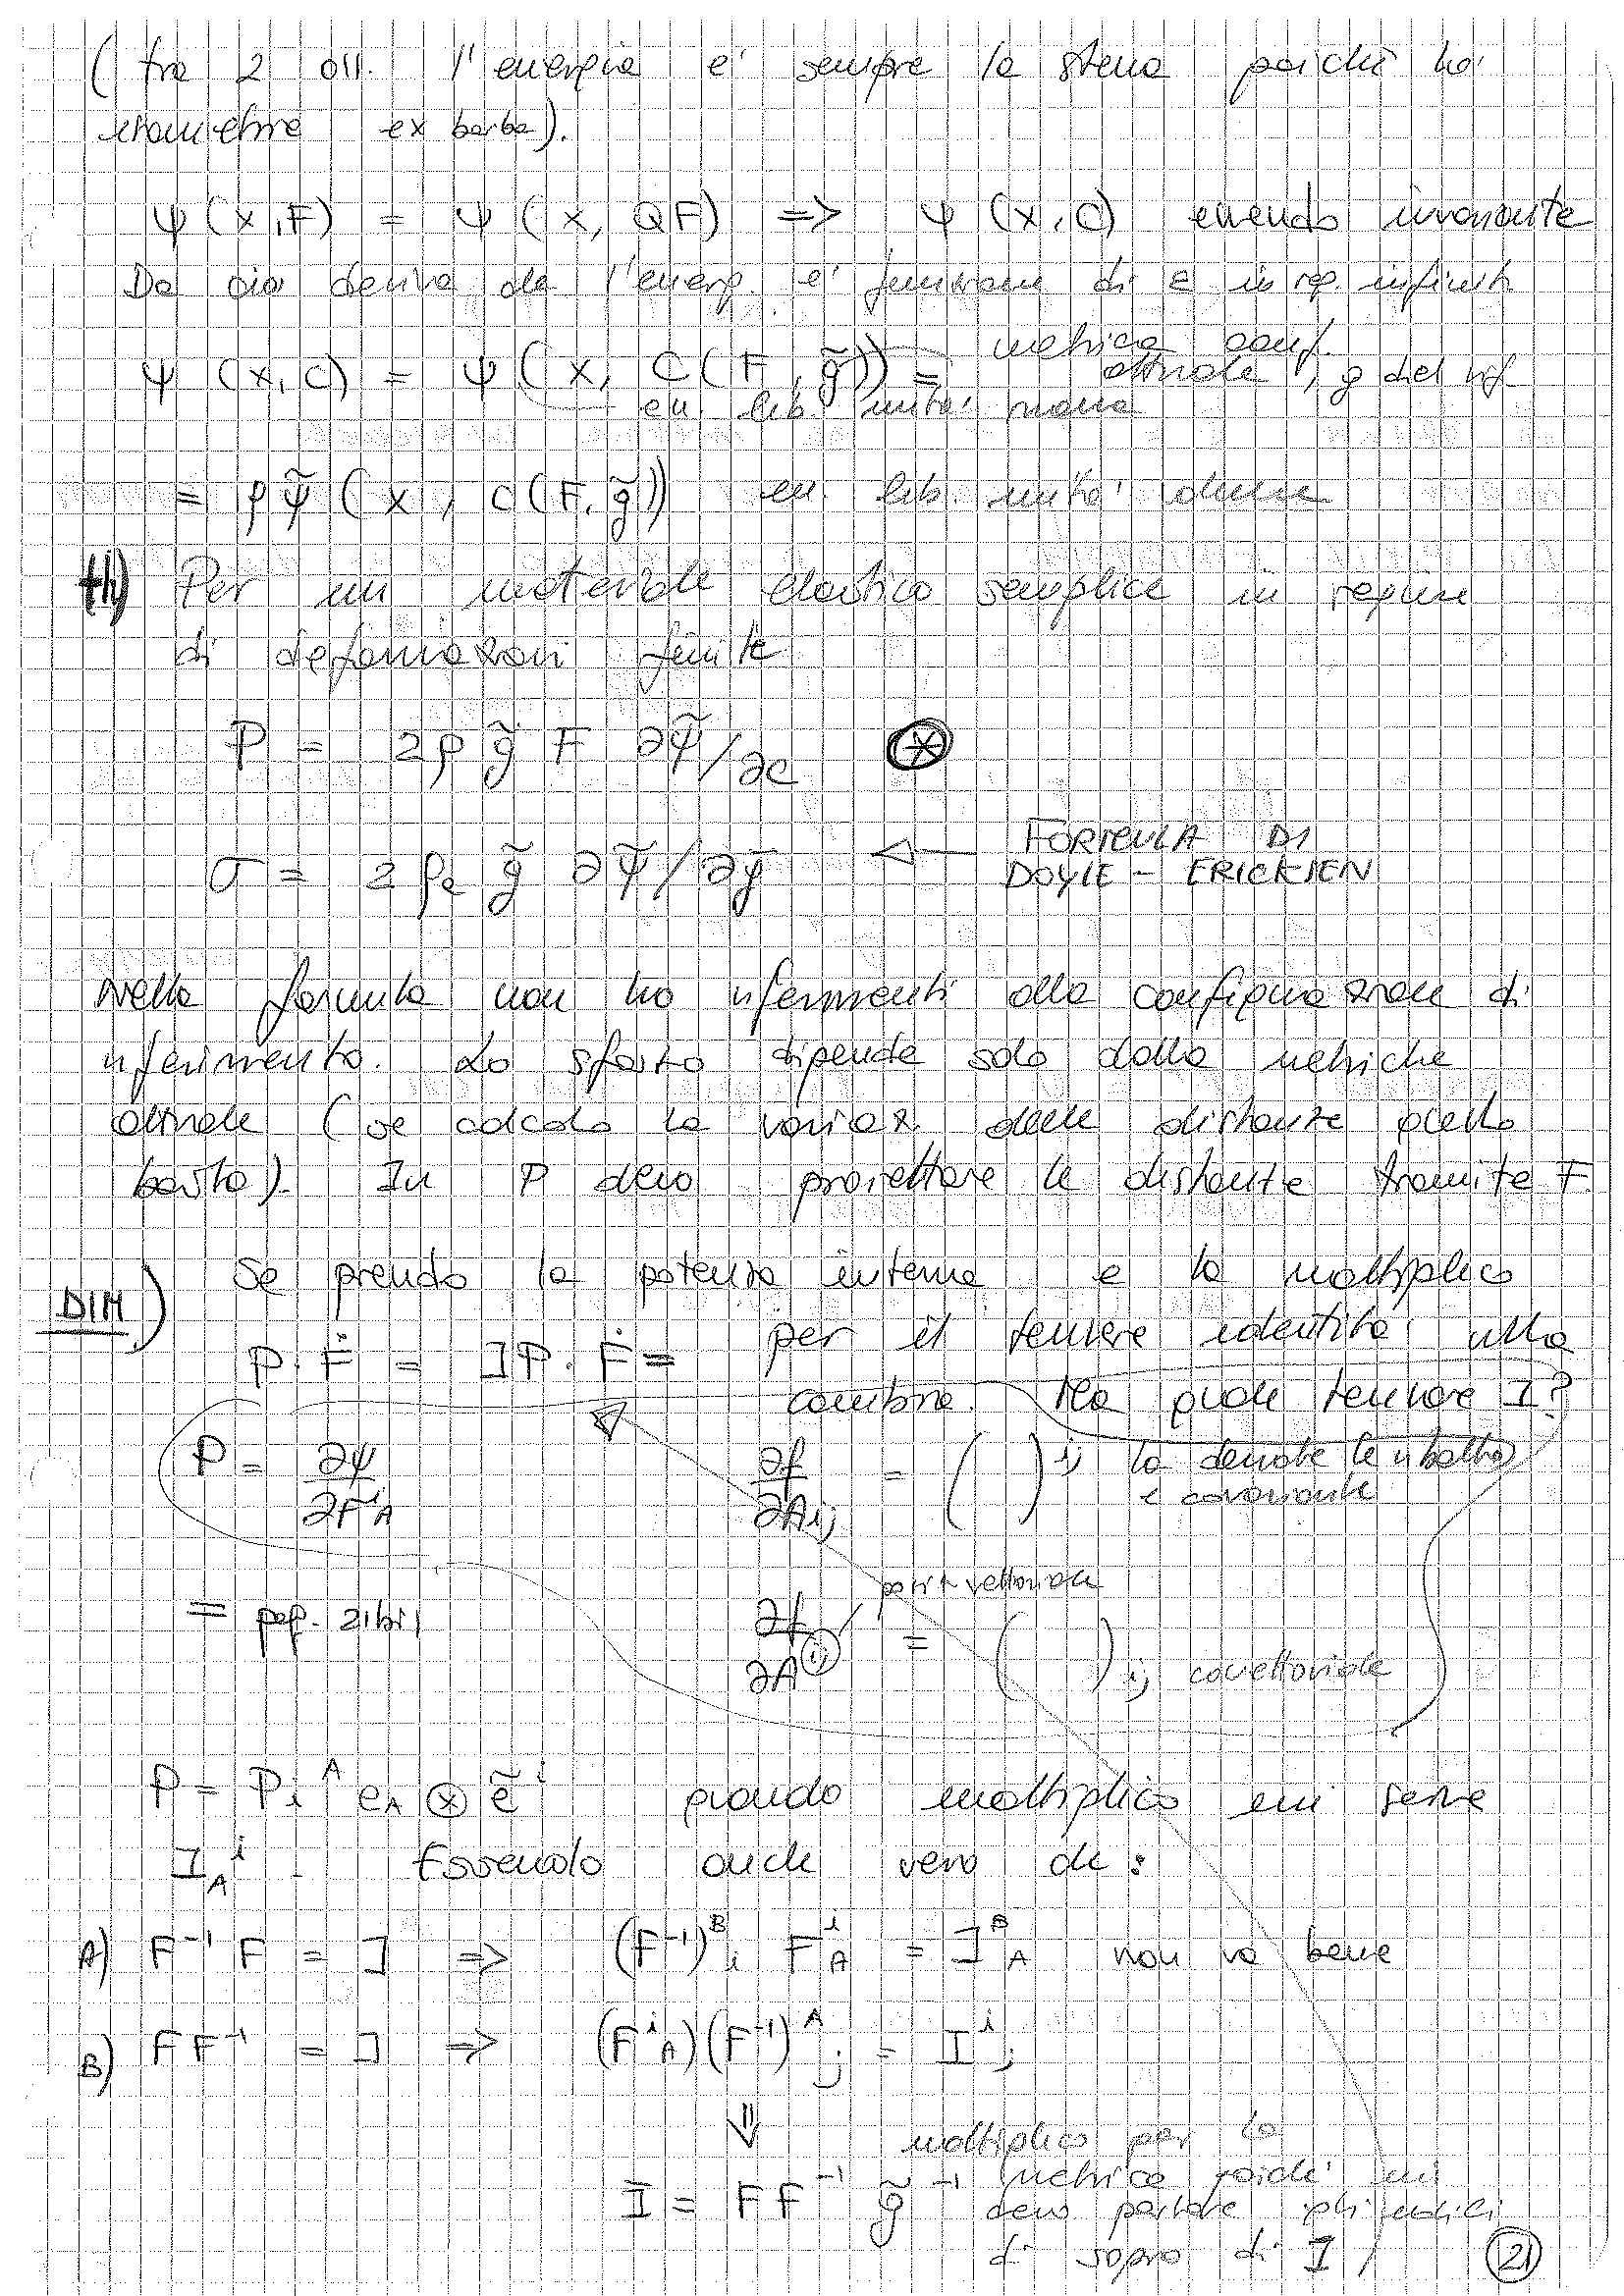 ( fra 2 oss. l'energia e' sempre la stessa poichè ho
isometrie ex barba).
ψ (x,F) = ψ (x, QF) => ψ (x,C) essendo invariante
Da cio deriva che l'energ. e' funzione di ε in reg. infinit.
ψ (x,C) = ψ (x, C(F,g̃)) = metrica conf. attuale, g del rif
en. lib. unita' massa
= ρ ψ̃ (x, C(F,g̃)) en. lib. unita'
th) Per un materiale elastico semplice in regime
di deformazioni finite
P = 2ρ g̃ F ∂ψ̃/∂C ⊛
σ = 2ρe g̃ ∂ψ̃/∂g̃ ← FORMULA DI
DOYLE - ERICKSEN
Nella formula non ho riferimenti alla configurazione di
riferimento. Lo sforzo dipende solo dalla metriche
attuale (se calcolo la variaz. delle distanze quello
basta). In P devo proiettare le distanze tramite F.
DIM) Se prendo la potenza interna e la moltiplico
P · Ḟ = IP · Ḟ = per il tensore identità nulla
cambia. Ma quale tensore I?
P = ∂ψ/∂F^i_A ∂f/∂A_ij = ( )^ij la derivate le ribalta
e covariante
= pag. 21bis ∂f/∂A^ij = ( )_ij covettoriale
parte vettoriale
P = P_i^A e_A ⊗ ẽ^i quando moltiplico mi serve
I_A^i. Essendo anche vero che:
A) F⁻¹ F = I => (F⁻¹)^B_i F^i_A = I^B_A non va bene
B) F F⁻¹ = I => (F^i_A)(F⁻¹)^A_j = I^i_j
⇓
moltiplico per la
Ī = F F⁻¹ g̃⁻¹ metrica poichè mi
devo portare gli indici
di sopra di I
21